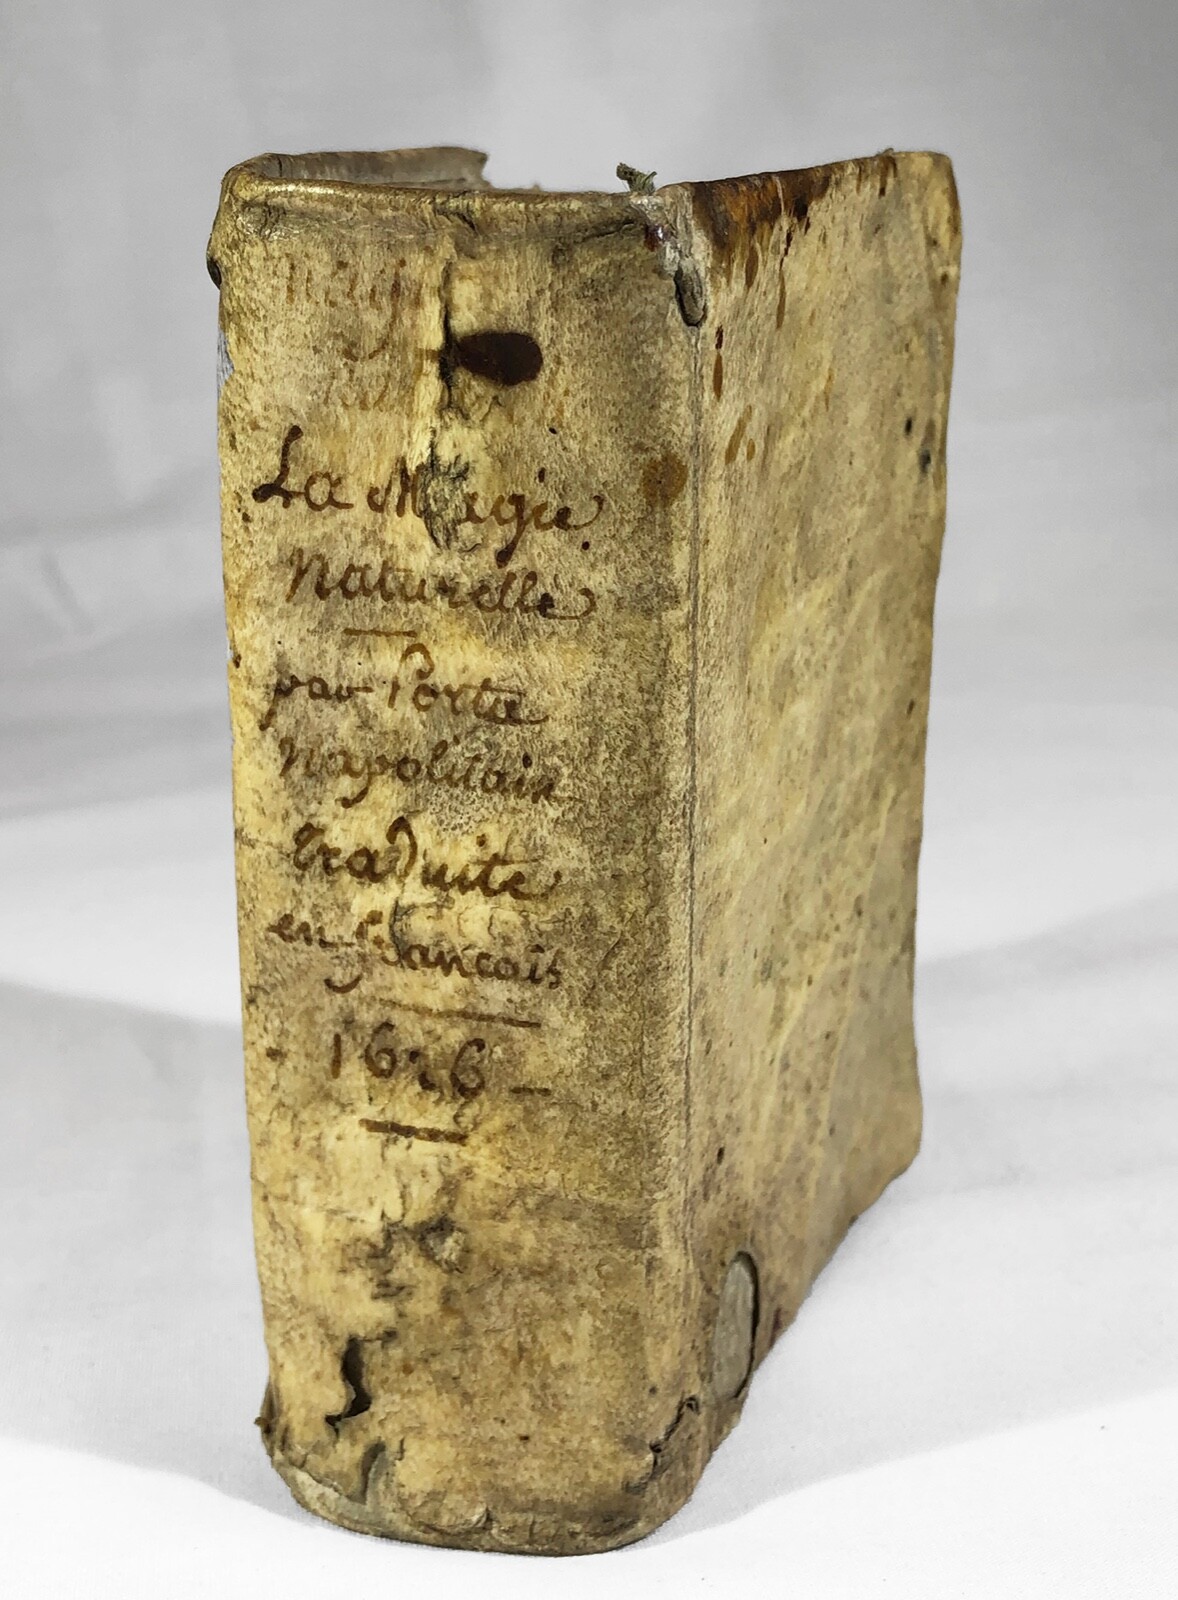 La Magie
Naturelle
par Porta
Napolitain
traduite
en francais
- 1626 -